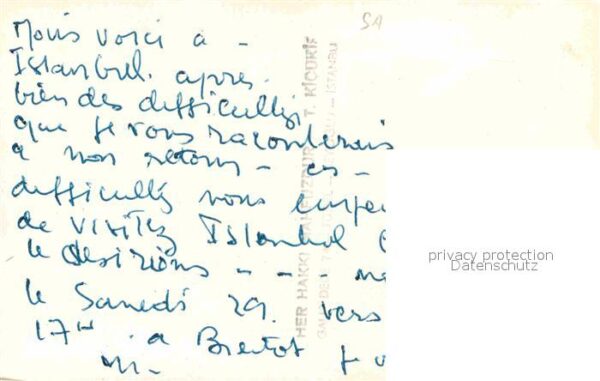 Nous voici a -
Istanbul. apres.
bien des difficultés,
que je vous raconterais
a mon retour - ces -
difficultés nous empe
de visitez Istanbul
le desirions - - -
le Samedi 29. vers
17H. a Bientot
SA
HER HAKKI
T. KIOURK
ISTANBUL
privacy protection
Datenschutz